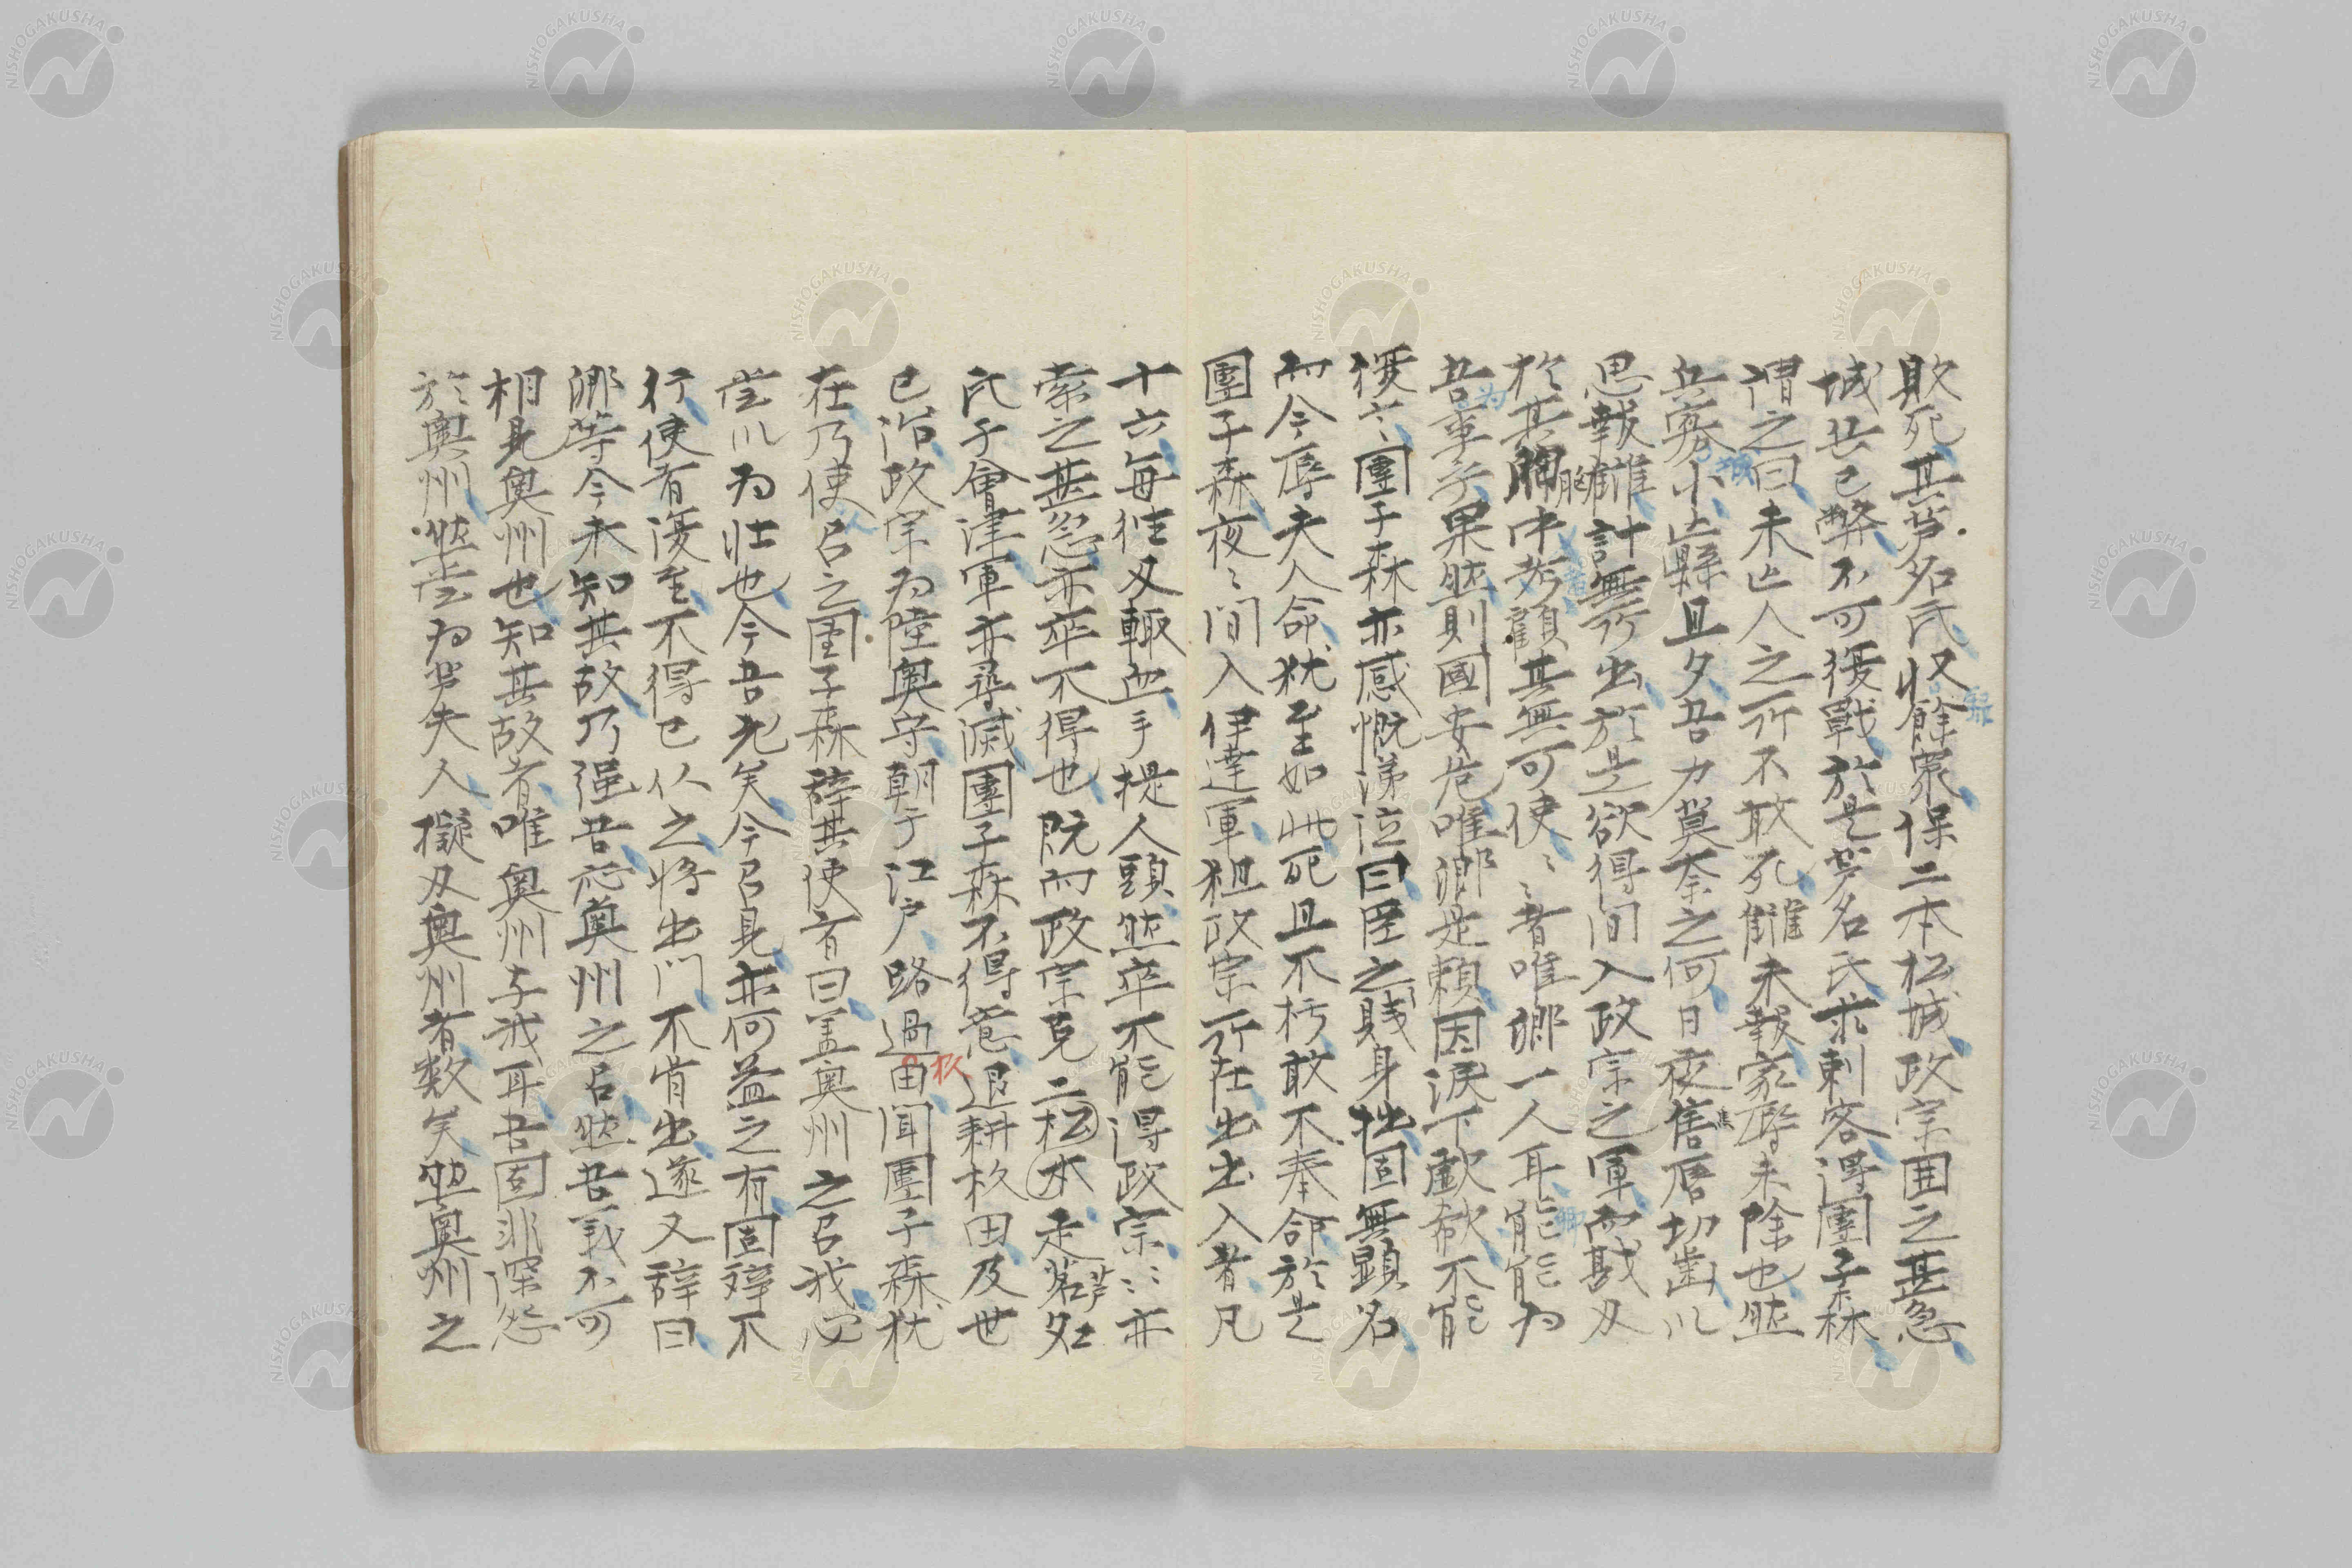 敗死其芦名氏收餘衆保二本松城政宗囲之甚急
城兵已弊不可復戰於是芦名氏求刺客得團子森
謂之曰未亡人之所不敢死讎未報家辱未除也然
兵寡小山縣旦夕吾力莫奈之何日夜焦唇切歯以
思報讎計無所出於是欲得间入政宗之軍而戡刄
於其胸中考顧其無可使〻〻者唯郷一人耳能能为
吾事乎果然則國安危唯郷是頼因涙下歔欷不能
復言團子森亦感慨涕泣曰臣之賎身拙固無顕名
而今辱夫人命犹至如此死且不朽敢不奉命於是
團子森夜〻间入伊達軍狙政宗所在出出入者凡
十六每徃又輙血手提人頭然卒不能得政宗〻亦
索之甚急亦卒不得也既而政宗克二松本走芦名
氏于會津軍亦尋滅團子森不得意退耕杦田及世
已治政宗为陸奥守朝于江戸路過杦田聞團子森犹
在乃使人召之團子森辞其使者曰盖奥州之召我心
岂以为壮也今吾老矣今召見亦何益之有固辞不
行使者復至不得已从之將出门不肯出遂又辞曰
郷等今未知其故乃强吾応奥州之召然吾義不可
相見奥州也知其故者唯奥州与我耳吾固非深怨
於奥州然岂为芦夫人擬刄奥州者数矣然奥州之
NISHOGAKUSHA